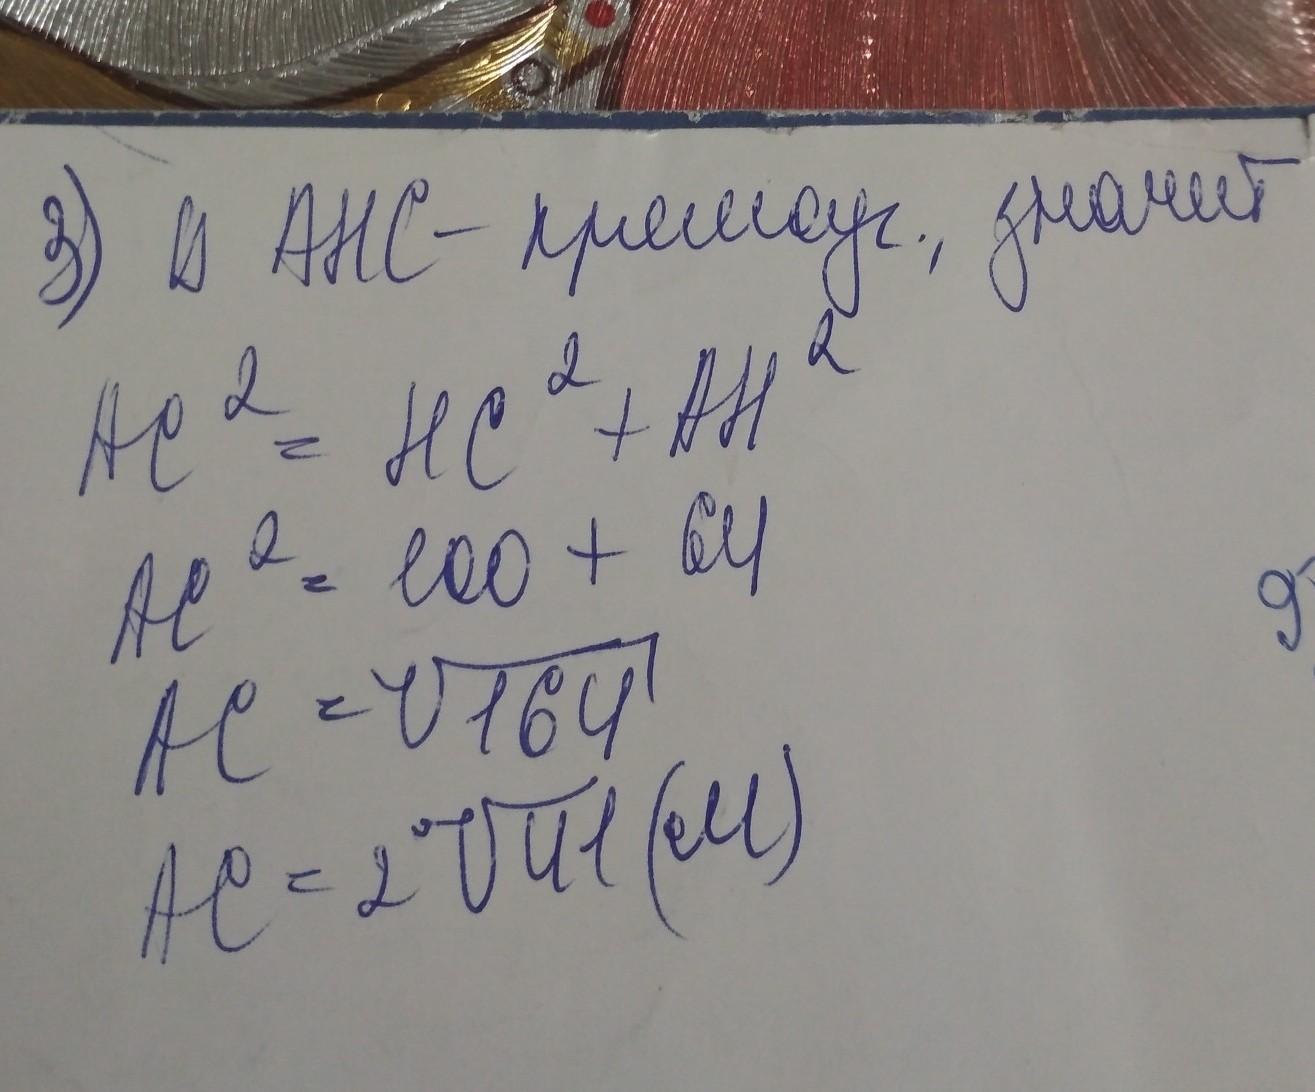 3) Δ AHC - прямоуг., значит
AC² = HC² + AH²
AC² = 100 + 64
AC = √164
AC = 2√41 (см)
9